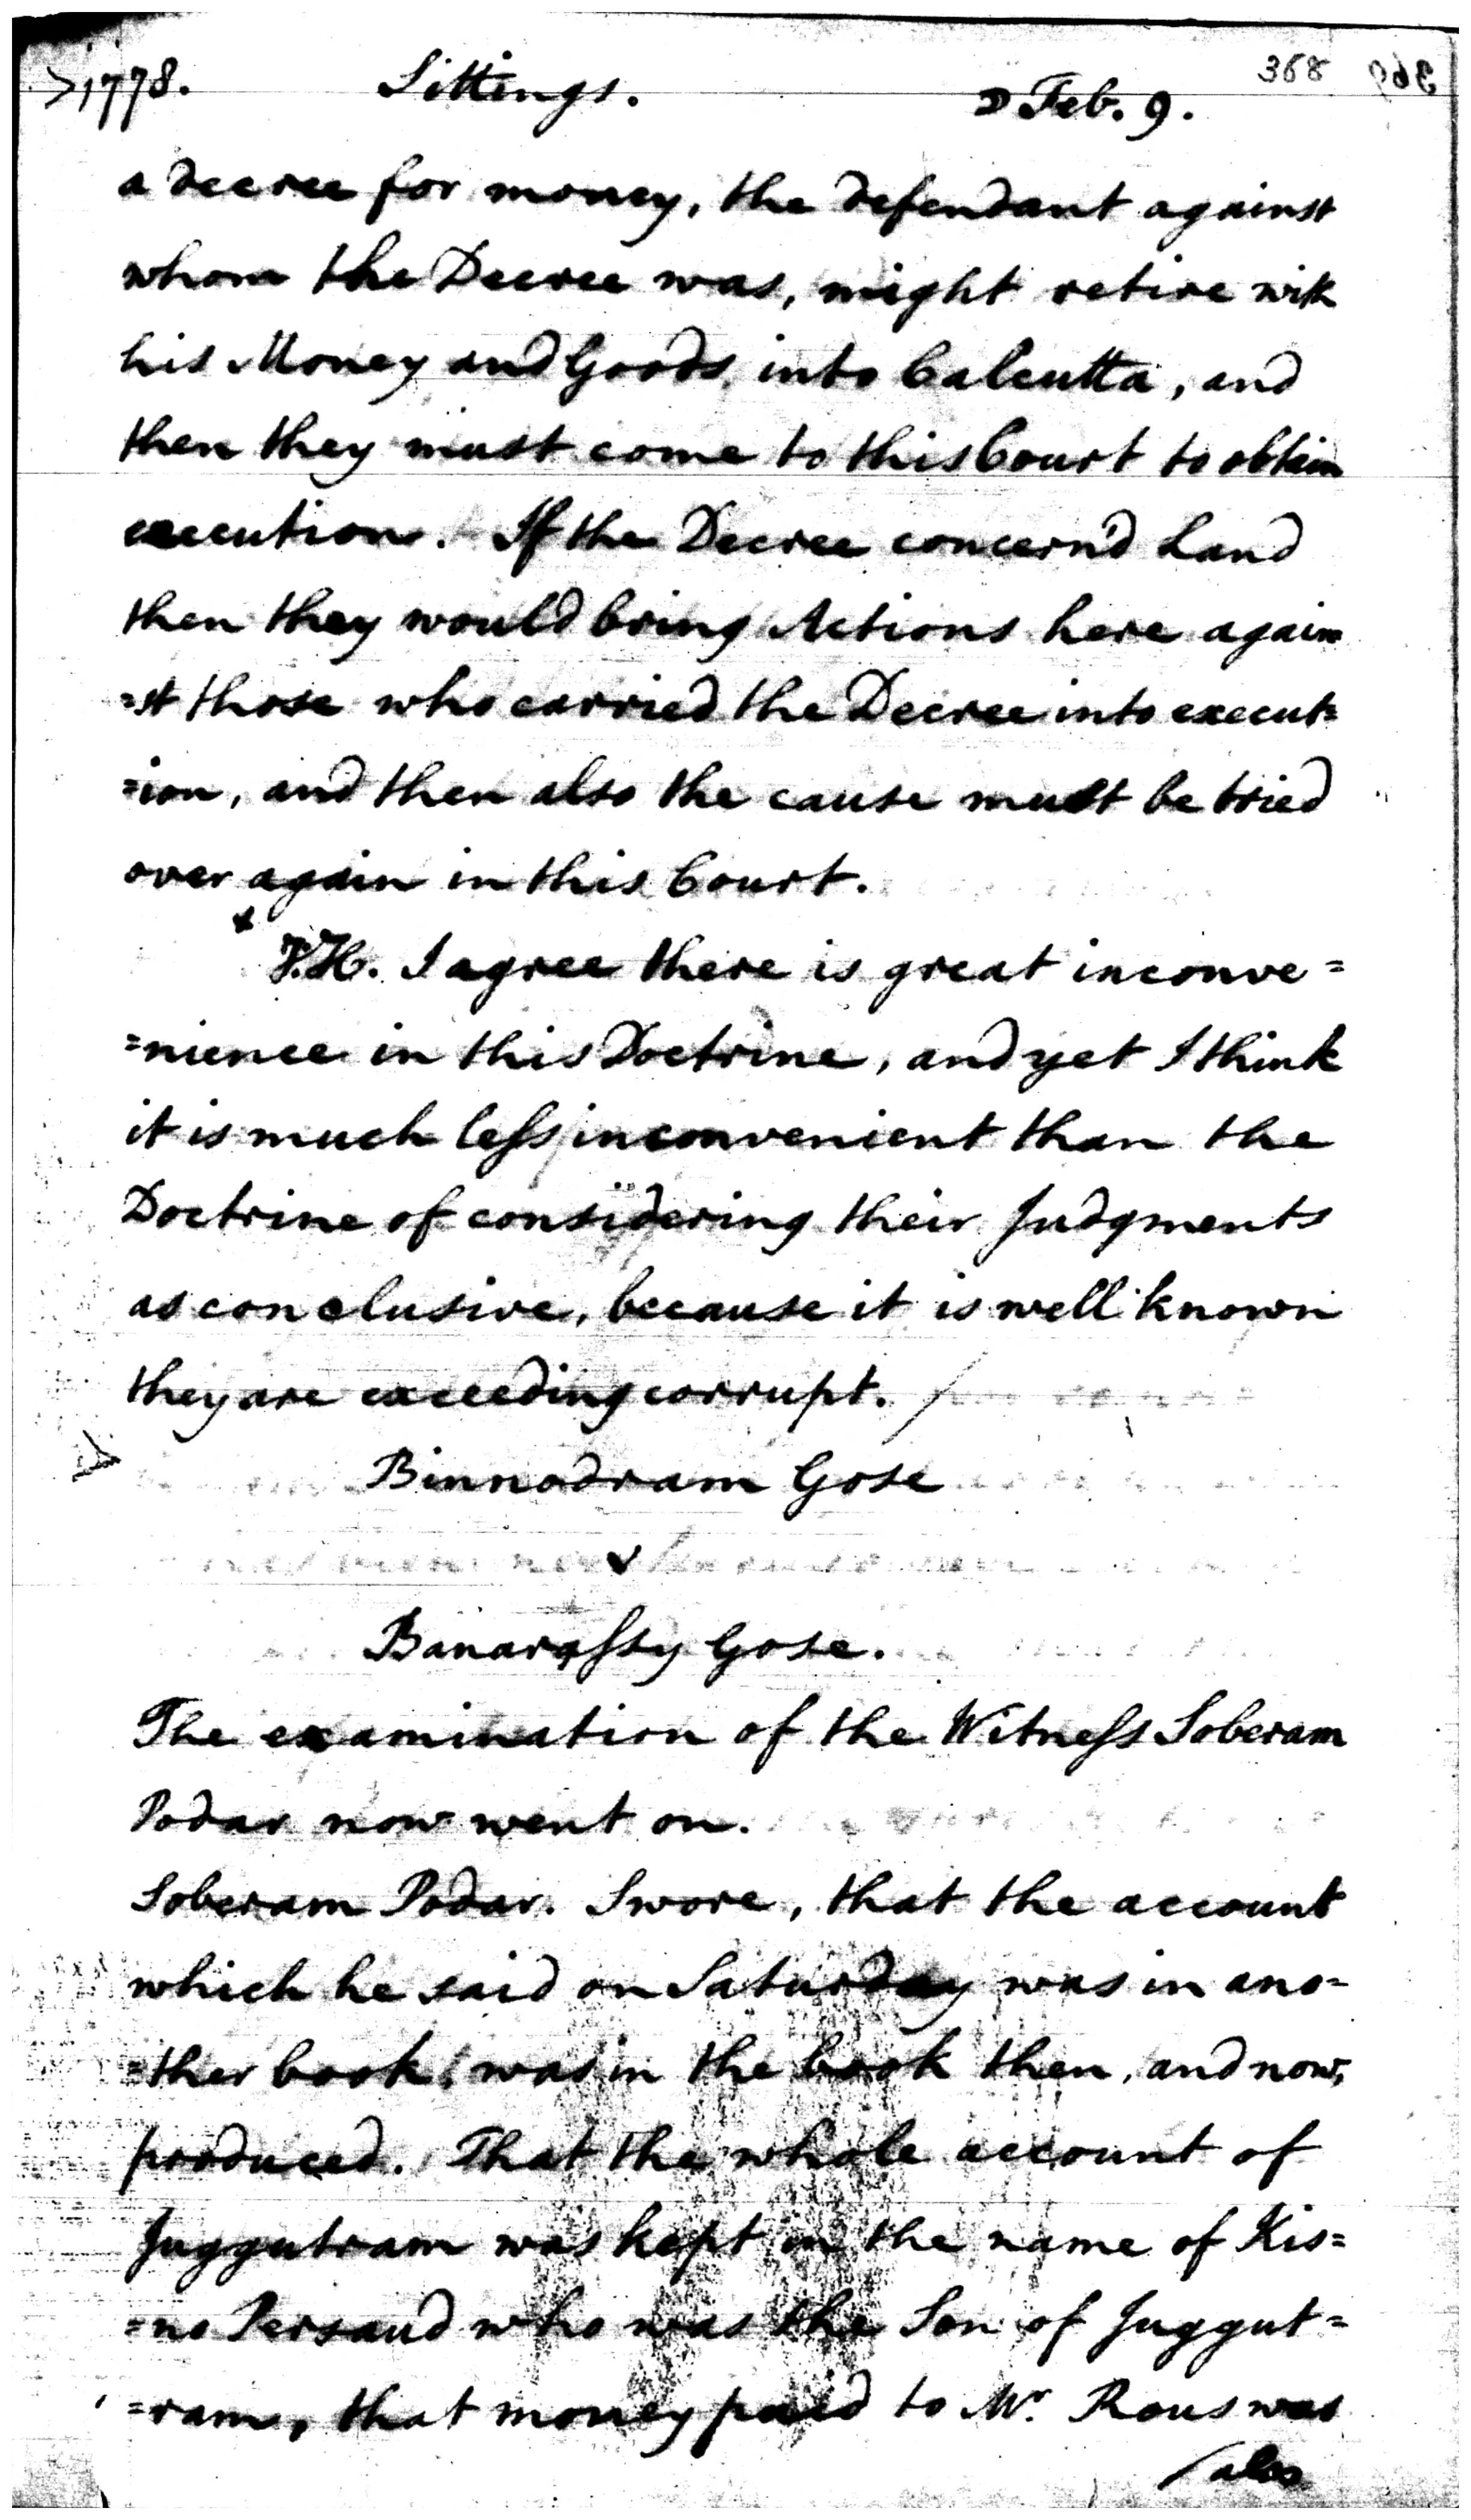 1778. Sittings. ☽ Feb. 9. 368
a decree for money, the defendant against
whom the Decree was, might retire with
his Money and Goods, into Calcutta, and
then they must come to this Court to obtain
execution. If the Decree concern'd Land
then they would bring Actions here again
=st those who carried the Decree into execut=
=ion, and then also the cause must be tried
over again in this Court.
J.H. I agree there is great inconve=
=nience in this Doctrine, and yet I think
it is much leſs inconvenient than the
Doctrine of considering their Judgments
as conclusive, because it is well known
they are exceeding corrupt. /
Binnodram Gose
v
Banaraſsy Gose.
The examination of the Witneſs Soberam
Podar now went on.
Soberam Podar. Swore, that the account
which he said on Saturday was in ano=
=ther book, was in the book then, and now,
produced. That the whole account of
Juggutram was kept in the name of Kis=
=no Persaud who was the Son of Juggut=
=ram, that money paid to Mr. Rous was
/also